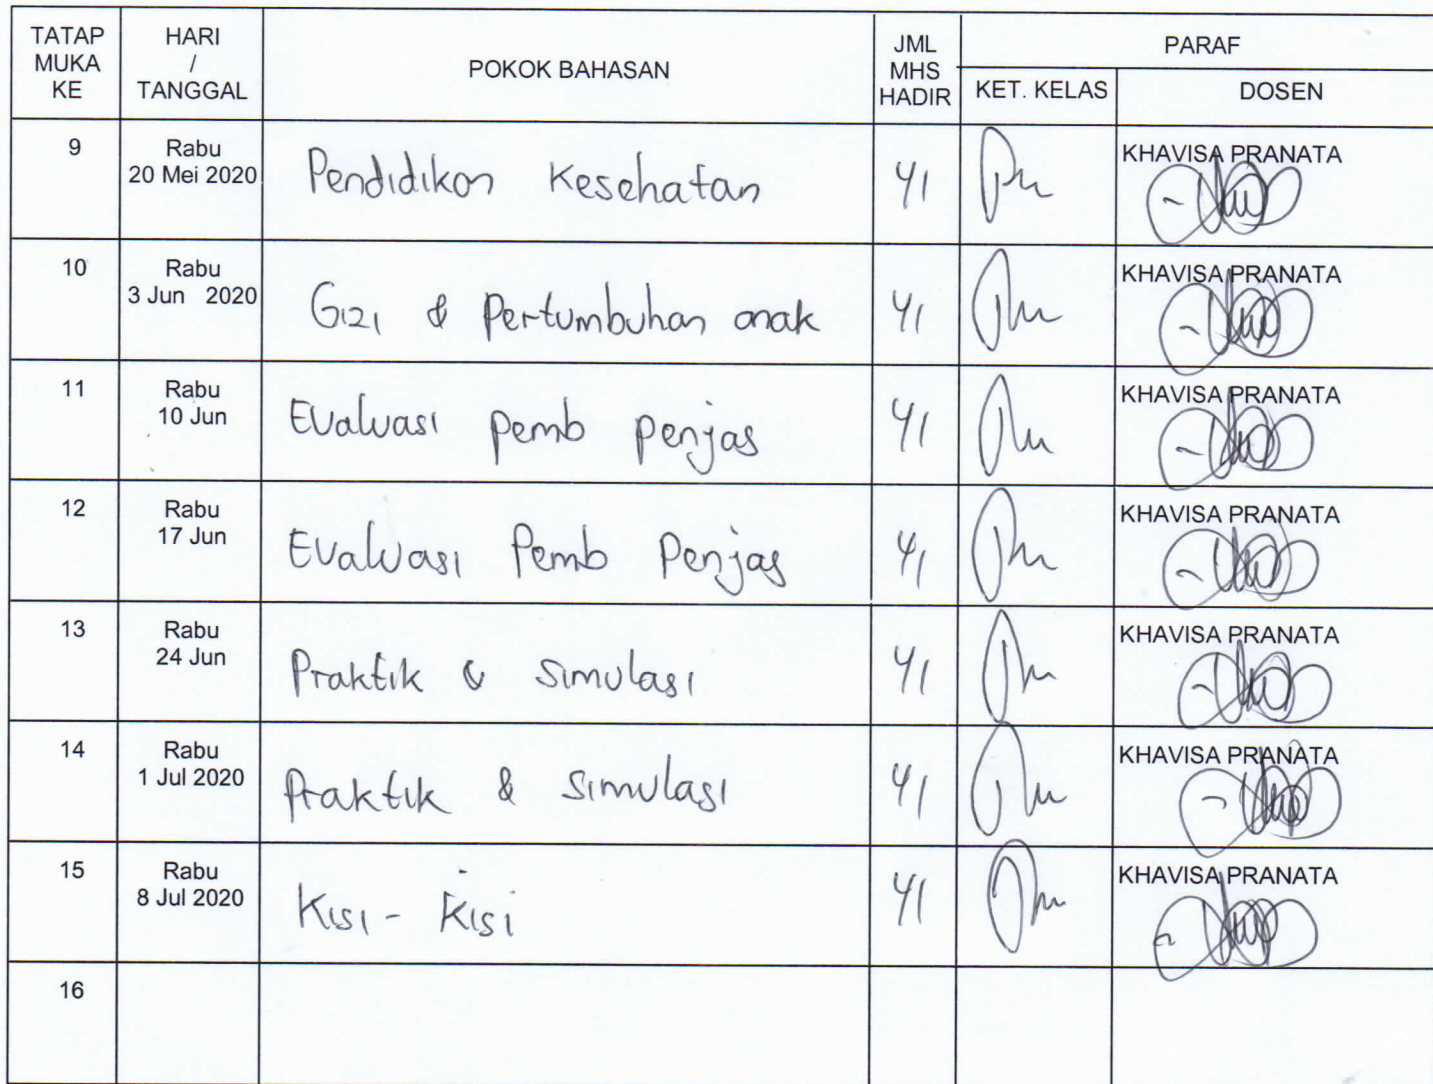 TATAP MUKA KE
HARI / TANGGAL
POKOK BAHASAN
JML MHS HADIR
PARAF
KET. KELAS
DOSEN
9
Rabu
20 Mei 2020
Pendidikan Kesehatan
41
KHAVISA PRANATA
10
Rabu
3 Jun 2020
Gizi & Pertumbuhan anak
41
KHAVISA PRANATA
11
Rabu
10 Jun
Evaluasi pemb penjas
41
KHAVISA PRANATA
12
Rabu
17 Jun
Evaluasi Pemb Penjas
41
KHAVISA PRANATA
13
Rabu
24 Jun
Praktik & Simulasi
41
KHAVISA PRANATA
14
Rabu
1 Jul 2020
Praktik & Simulasi
41
KHAVISA PRANATA
15
Rabu
8 Jul 2020
Kisi - Kisi
41
KHAVISA PRANATA
16